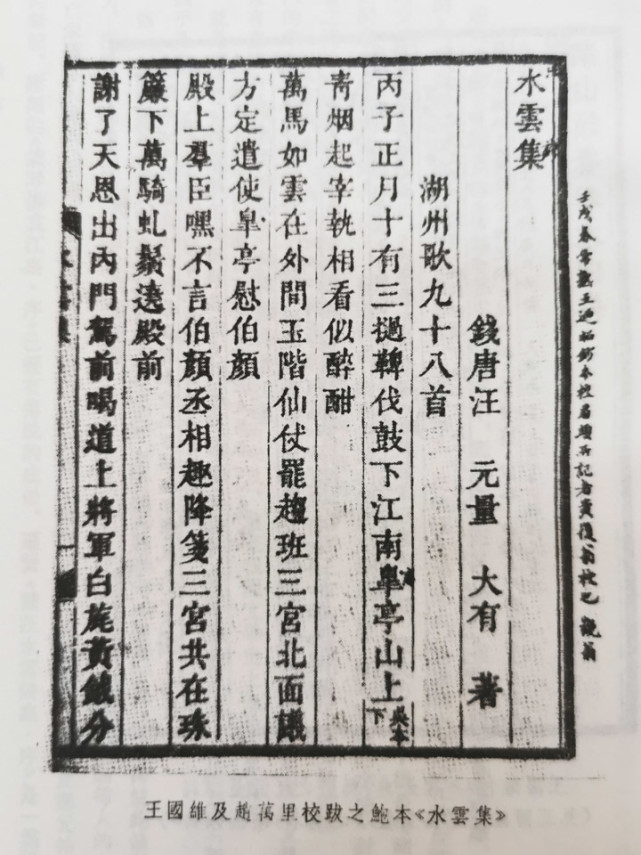 壬戌春常熟王鈔本校眉者黃復翁校 觀翁
水雲集
錢唐汪 元量 大有 著
湖州歌九十八首
丙子正月十有三撾鞞伐鼓下江南臯亭山上吳本下
青烟起宰執相看似醉酣
萬馬如雲在外間玉階仙仗罷趨班三宮北面議
方定遣使臯亭慰伯顏
殿上羣臣嘿不言伯顏丞相趣降箋三宮共在珠
簾下萬騎虬鬚遶殿前
謝了天恩出內門駕前喝道上將軍白旄黃鉞分
水雲集
王國維及趙萬里校跋之鮑本《水雲集》